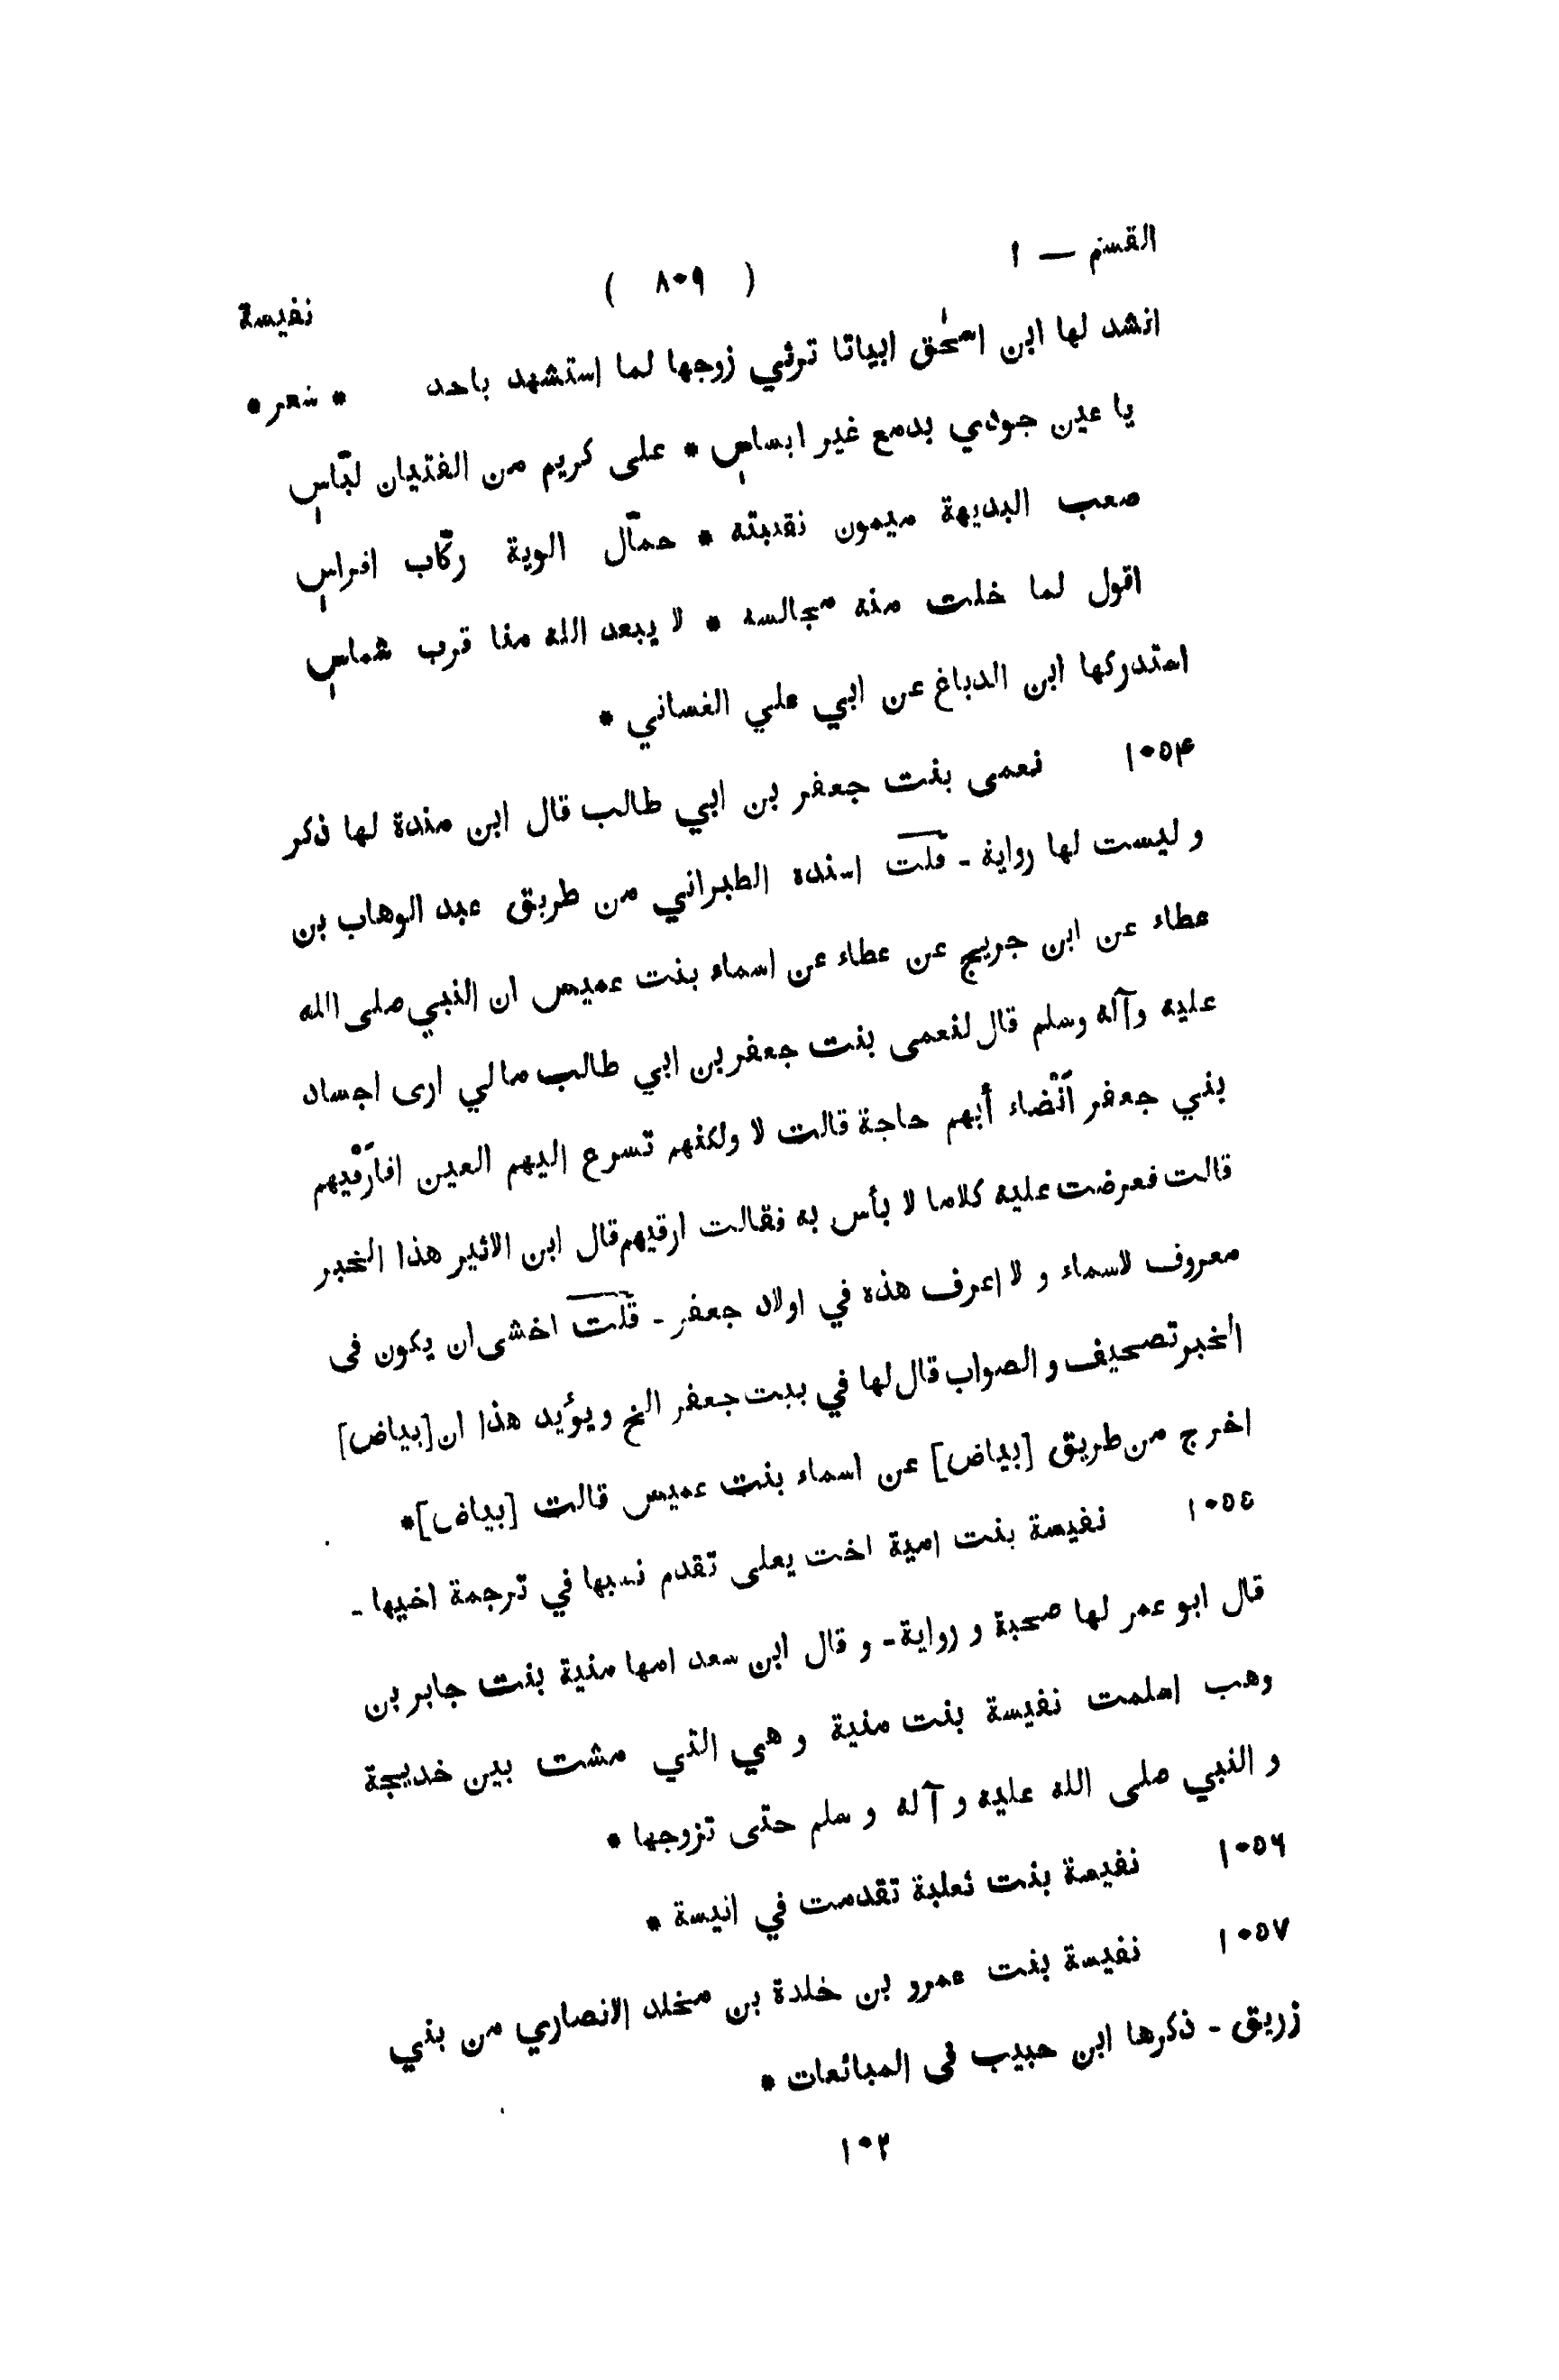 القسم — ١
( ٨٠٩ )
نفيسة
انشد لها ابن اسحٰق ابياتا ترثي زوجها لما استشهد باحد * شعر *
يا عين جودي بدمع غير ابساسٍ * على كريم من الفتيان لبّاسٍ
صعب البديهة ميمون نقيبته * حمّال الوية ركّاب افراسٍ
اقول لما خلت منه مجالسه * لا يبعد الله منا قرب شماسٍ
استدركها ابن الدباغ عن ابي علي الغساني *
١٠٥۴ نعمى بنت جعفر بن ابي طالب قال ابن مندة لها ذكر
و ليست لها رواية - قلت اسنده الطبراني من طريق عبد الوهاب بن
عطاء عن ابن جريج عن عطاء عن اسماء بنت عميس ان النبي صلى الله
عليه وآله وسلم قال لنعمى بنت جعفر بن ابي طالب ما لي ارى اجساد
بني جعفر اَنْضاء أبهم حاجة قالت لا ولكنهم تسرع اليهم العين افاَرْقيهم
قالت فعرضت عليه كلاما لا بأس به فقالت ارقيهم قال ابن الاثير هذا الخبر
معروف لاسماء و لا اعرف هذه في اولاد جعفر - قلت اخشى ان يكون فى
الخبر تصحيف و الصواب قال لها في بيت جعفر الخ و يؤيد هذا ان [بياض]
اخرج من طريق [بياض] عن اسماء بنت عميس قالت [بياض]*
١٠٥٤ نفيسة بنت امية اخت يعلى تقدم نسبها في ترجمة اخيها -
قال ابو عمر لها صحبة و رواية - و قال ابن سعد امها منية بنت جابر بن
وهب اسلمت نفيسة بنت منية و هي التي مشت بين خديجة
و النبي صلى الله عليه و آله و سلم حتى تزوجها *
١٠٥٦ نفيسة بنت ثعلبة تقدمت في انيسة *
١٠٥٧ نفيسة بنت عمرو بن خلدة بن مخلد الانصاري من بني
زريق - ذكرها ابن حبيب فى المبائعات *
١٠٢